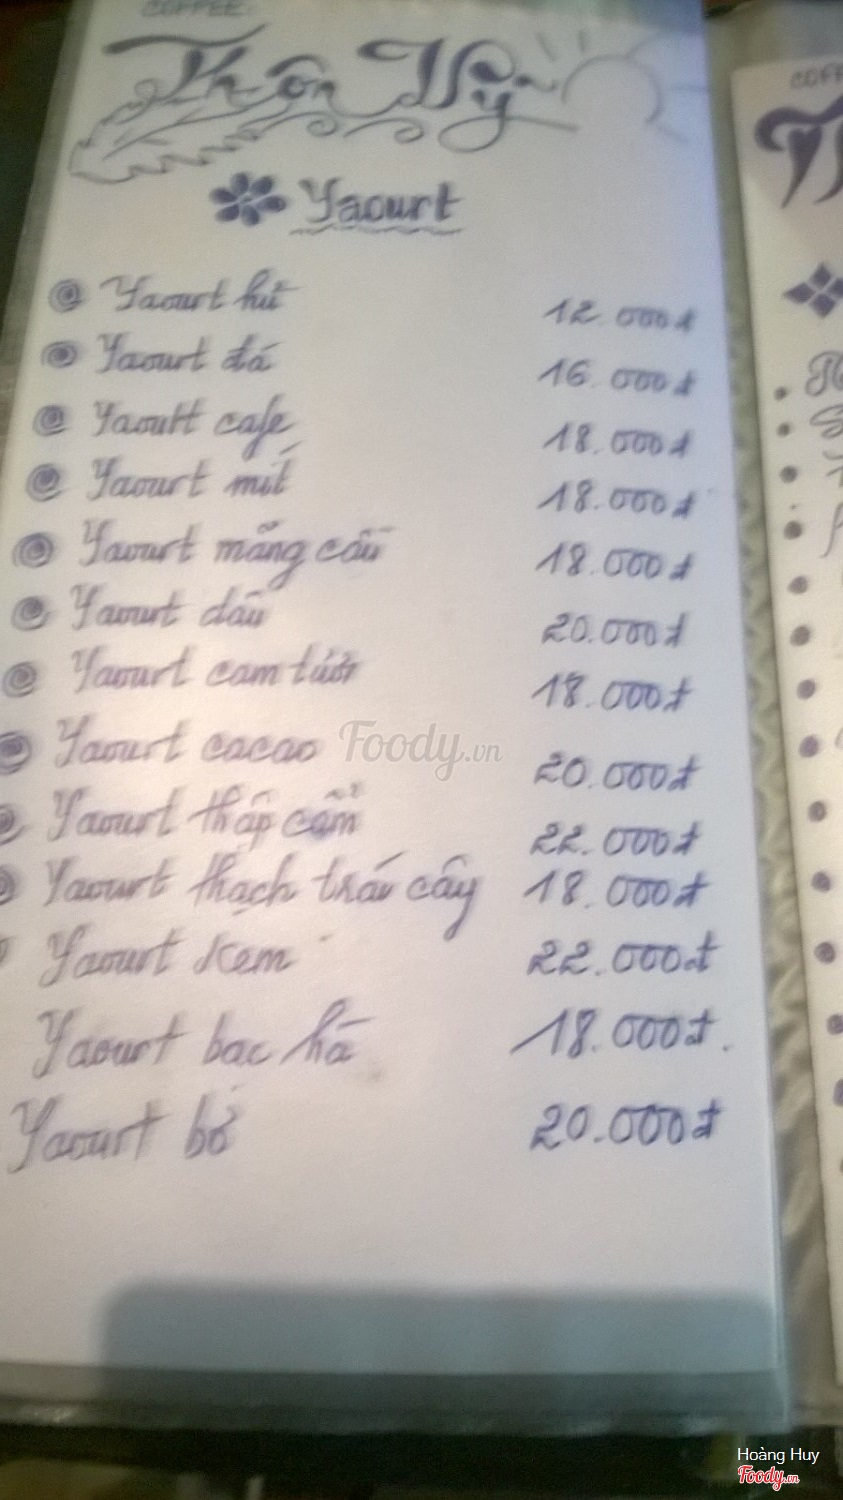 COFFEE
Thôn Vỹ
Yaourt
Yaourt hủ 12.000đ
Yaourt đá 16.000đ
Yaourt cafe 18.000đ
Yaourt mít 18.000đ
Yaourt mãng cầu 18.000đ
Yaourt dâu 20.000đ
Yaourt cam tươi 18.000đ
Yaourt cacao 20.000đ
Foody.vn
Yaourt thập cẩm 22.000đ
Yaourt thạch trái cây 18.000đ
Yaourt kem 22.000đ
Yaourt bạc hà 18.000đ.
Yaourt bơ 20.000đ
Hoàng Huy
Foody.vn